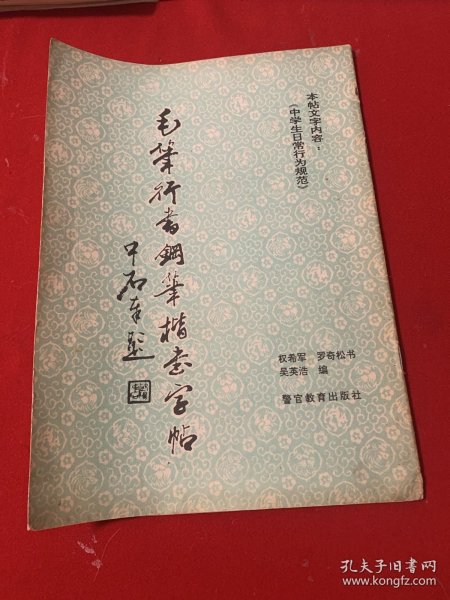 本帖文字内容：
《中学生日常行为规范》
毛笔行书钢笔楷书字帖
中石奉题
权希军 罗奇松书
吴英浩 编
警官教育出版社
孔夫子旧书网
www.kongfz.com